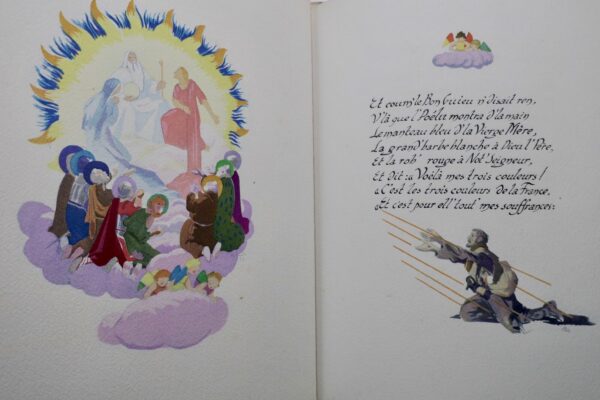 Et coum' le Bon Guieu n'disait ren,
V'là que l'Poélu montra d'la main
Le manteau bleu d'la Viorge Mère,
La grand' barbe blanche à Dieu l'Père,
Et la rob' rouge à Not' Seigneur,
Et dit : « Voilà mes trois couleurs !
« C'est les trois couleurs de la France,
« Et c'est pour ell' tout' mes souffrances: